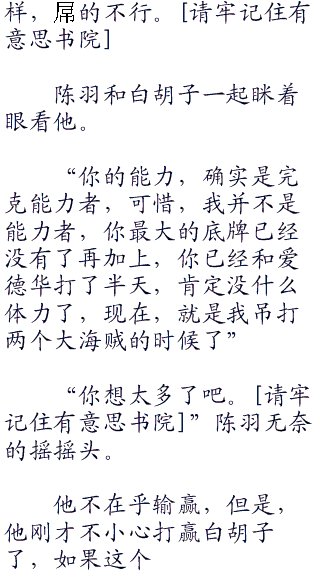 样，屌的不行。[请牢记住有
意思书院]
陈羽和白胡子一起眯着
眼看他。
“你的能力，确实是完
克能力者，可惜，我并不是
能力者，你最大的底牌已经
没有了再加上，你已经和爱
德华打了半天，肯定没什么
体力了，现在，就是我吊打
两个大海贼的时候了”
“你想太多了吧。[请牢
记住有意思书院]”陈羽无奈
的摇摇头。
他不在乎输赢，但是，
他刚才不小心打赢白胡子
了，如果这个